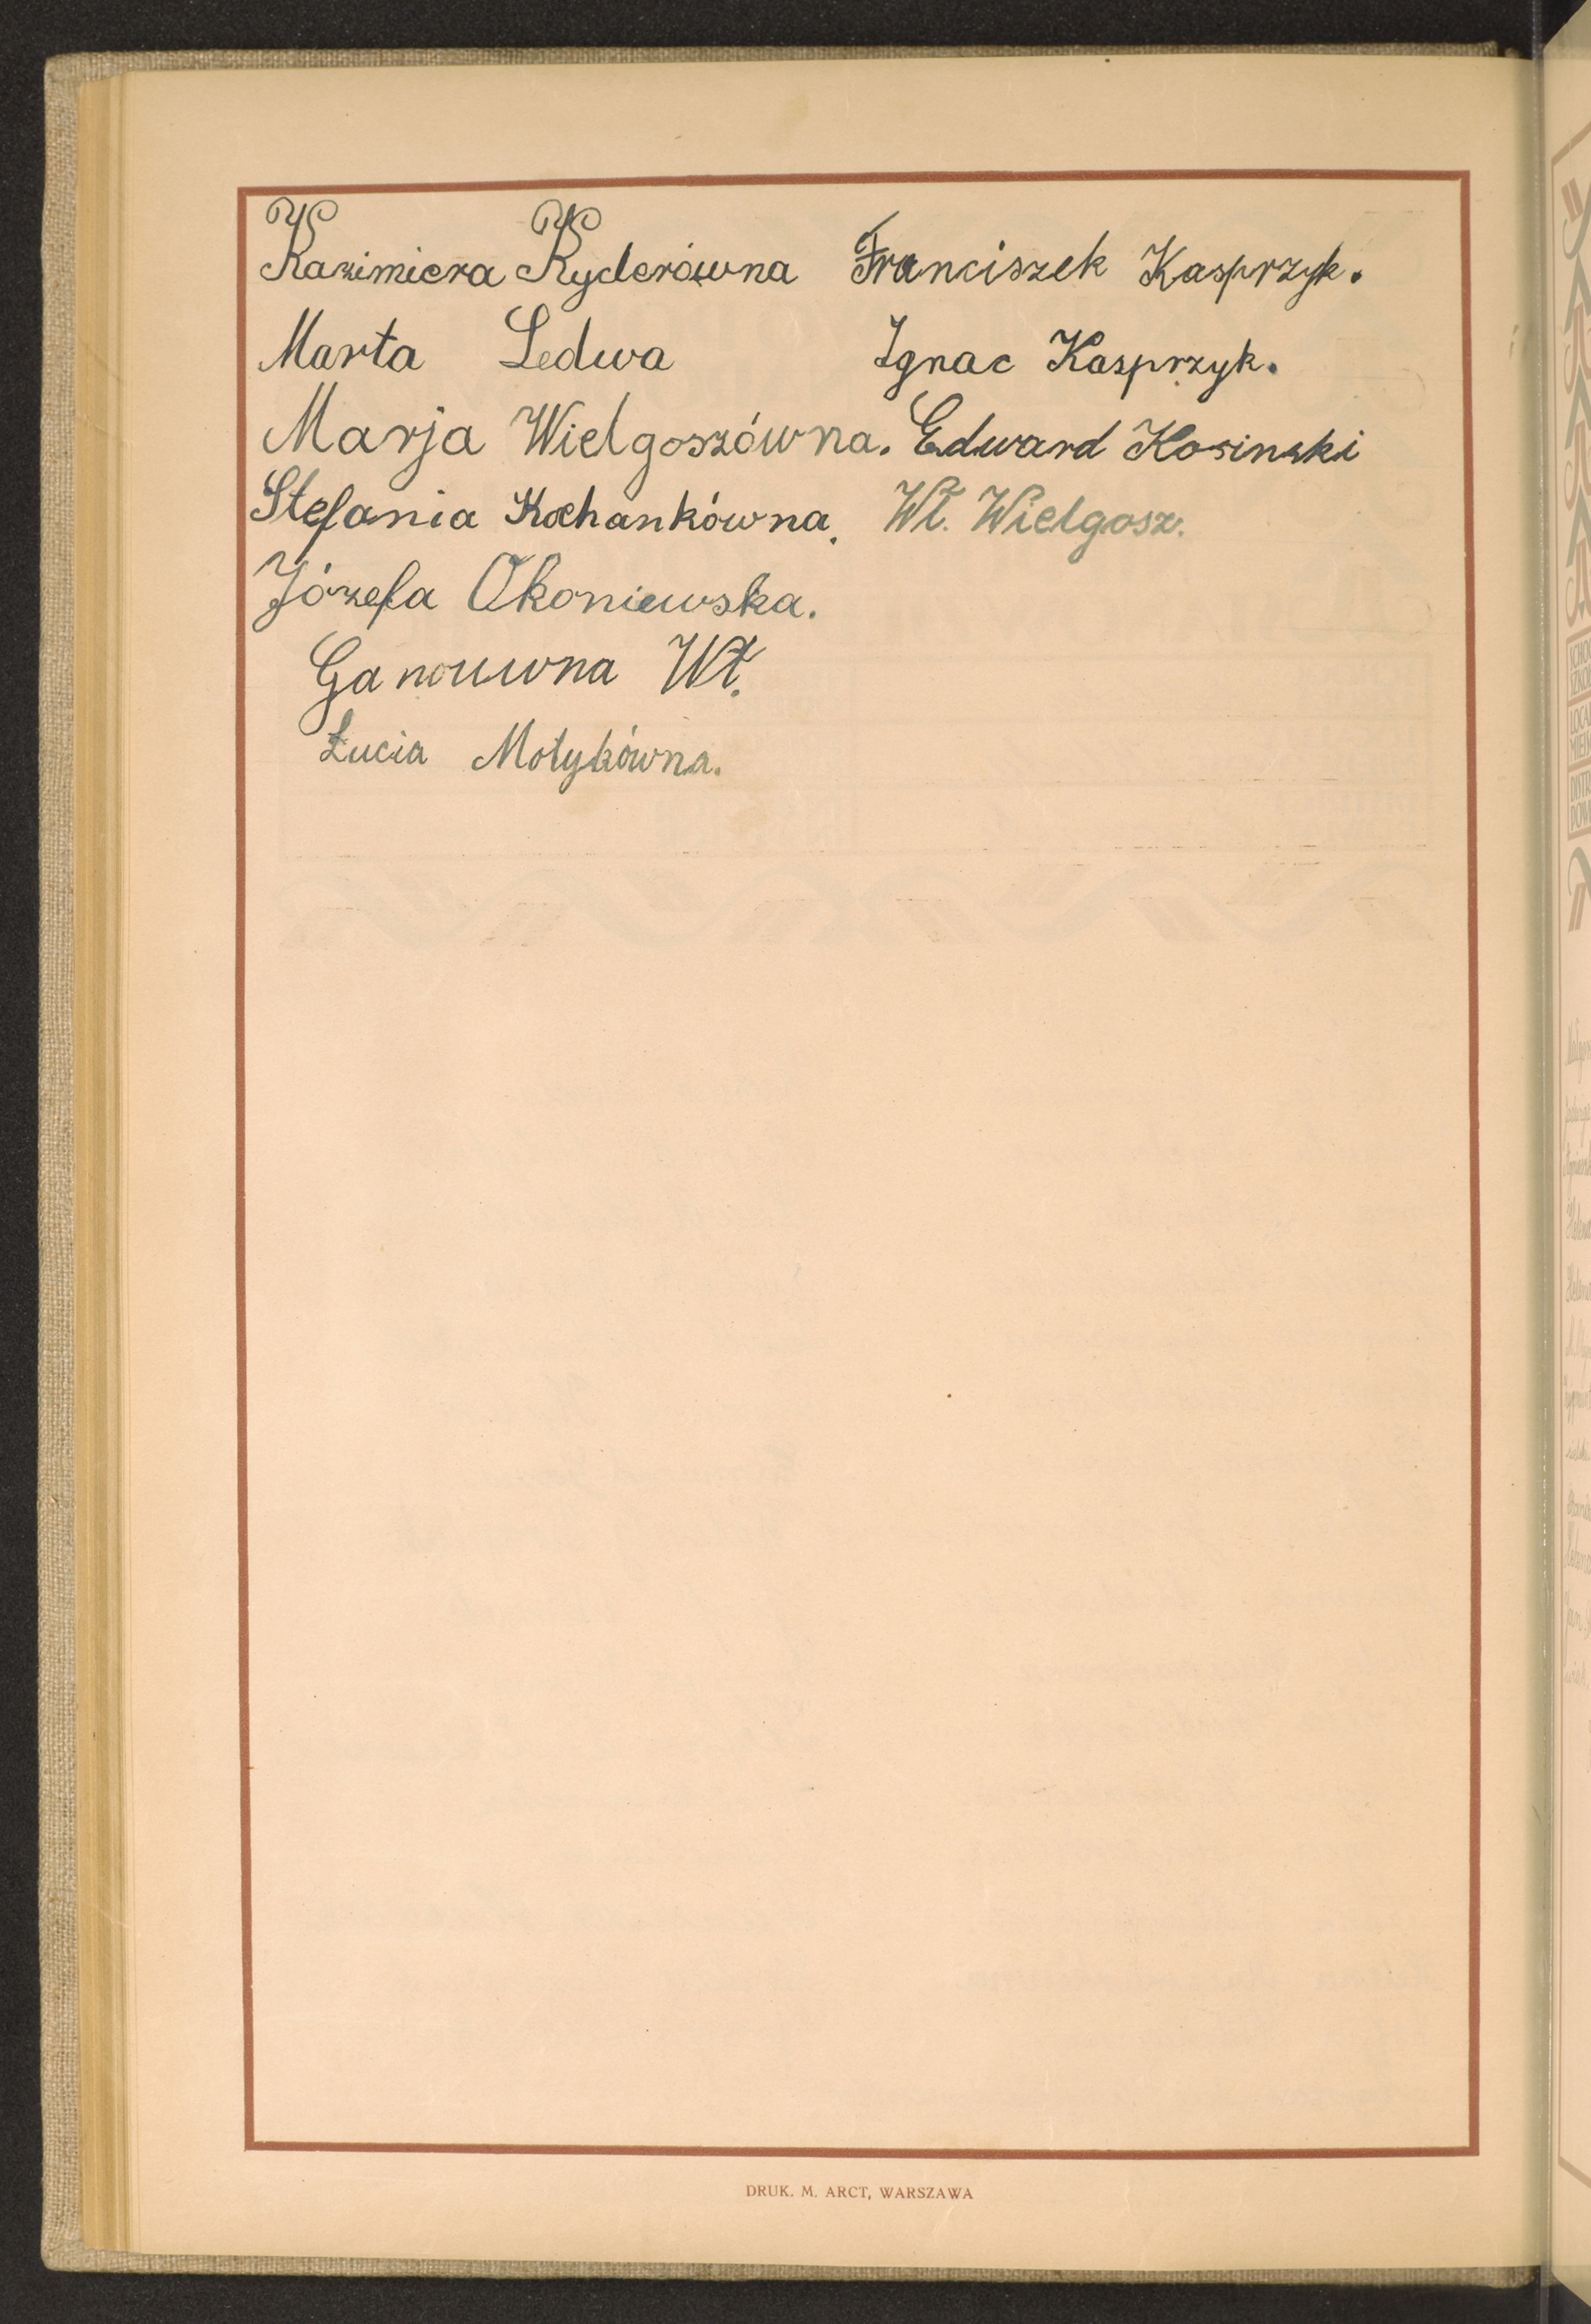 Kazimiera Ryderówna Franciszek Kasprzyk.
Marta Ledwa Ignac Kasprzyk.
Marja Wielgoszówna. Edward Kosinski
Stefania Kochankówna. Wł. Wielgosz.
Józefa Okoniewska.
Wł.
Łucia Motykówna.
DRUK. M. ARCT, WARSZAWA